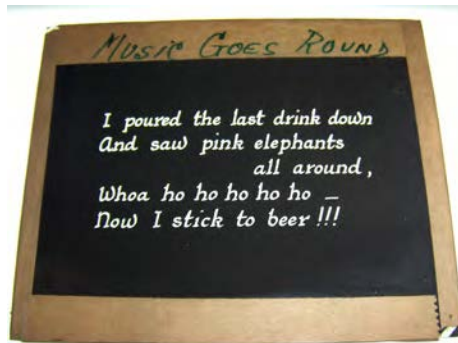 MUSIC GOES ROUND
I poured the last drink down
And saw pink elephants
all around,
Whoa ho ho ho ho ho _
Now I stick to beer !!!